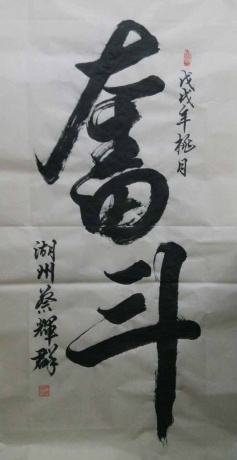 奮斗
戊戌年桃月
湖州蔡輝群